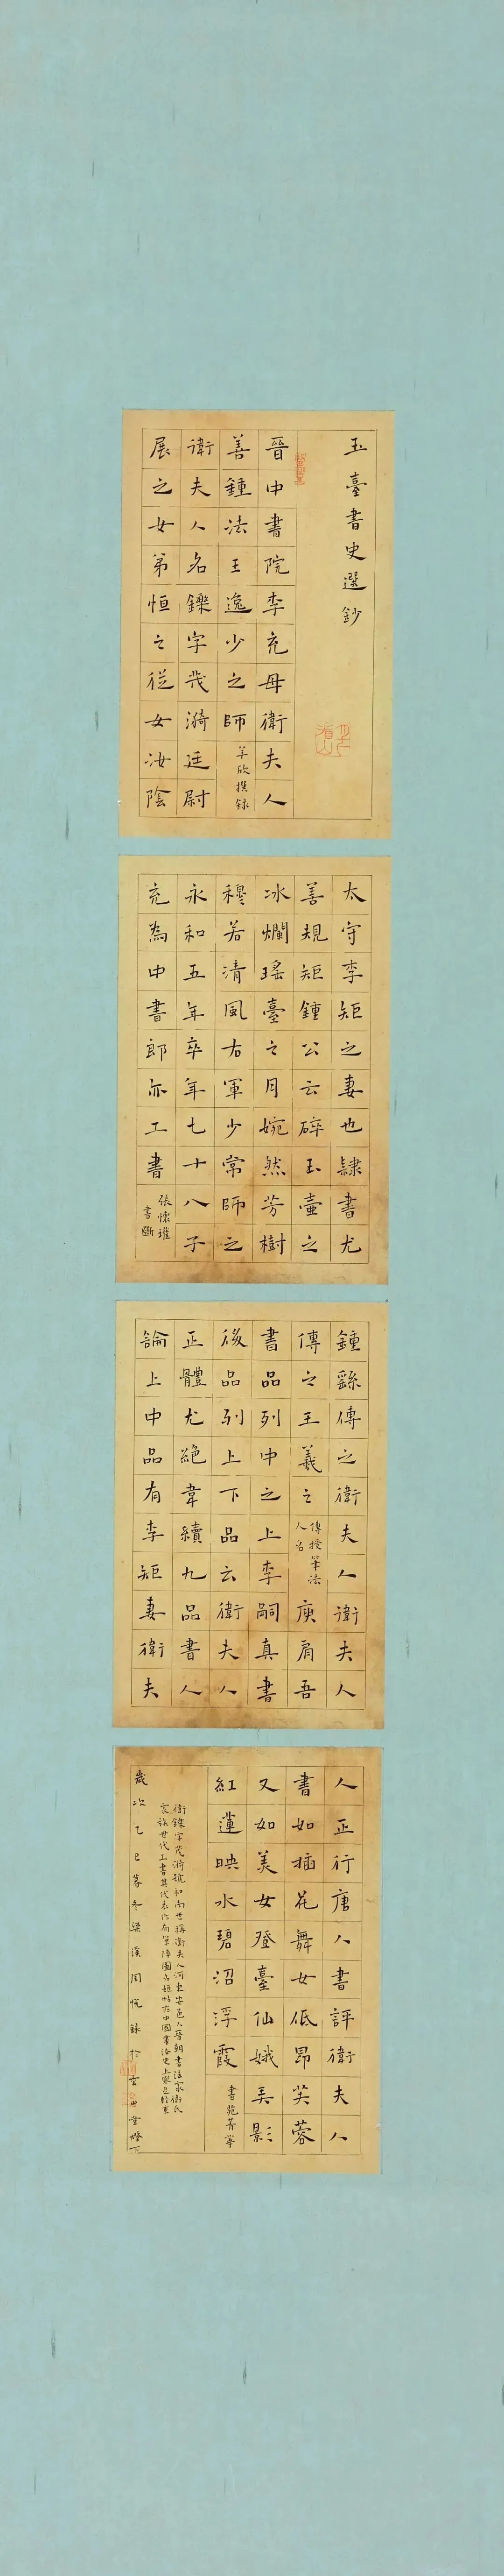 玉臺書史選鈔
晉中書院李充母衛夫人
善鍾法王逸少之師
羊欣撰錄
衛夫人名鑠字茂漪廷尉
展之女弟恒之從女汝陰
太守李矩之妻也隸書尤
善規矩鍾公云碎玉壺之
冰爛瑤臺之月婉然芳樹
穆若清風右軍少常師之
永和五年卒年七十八子
充為中書郎亦工書
張懷瓘
書斷
鍾繇傳之衛夫人衛夫人
傳之王羲之
傳授筆法
人名
庾肩吾
書品列中之上李嗣真書
後品列上下品云衛夫人
正體尤絕韋續九品書人
論上中品有李矩妻衛夫
人正行唐人書評衛夫人
書如插花舞女低昂芙蓉
又如美女登臺仙娥弄影
紅蓮映水碧沼浮霞
書苑菁華
衛鑠字茂漪號和南世稱衛夫人河東安邑人晉朝書法家衛氏
家族世代工書其代表作有筆陣圖名姬帖在中國書法史上
歲次乙巳冬梁溪周悅錄於雲山堂燈下